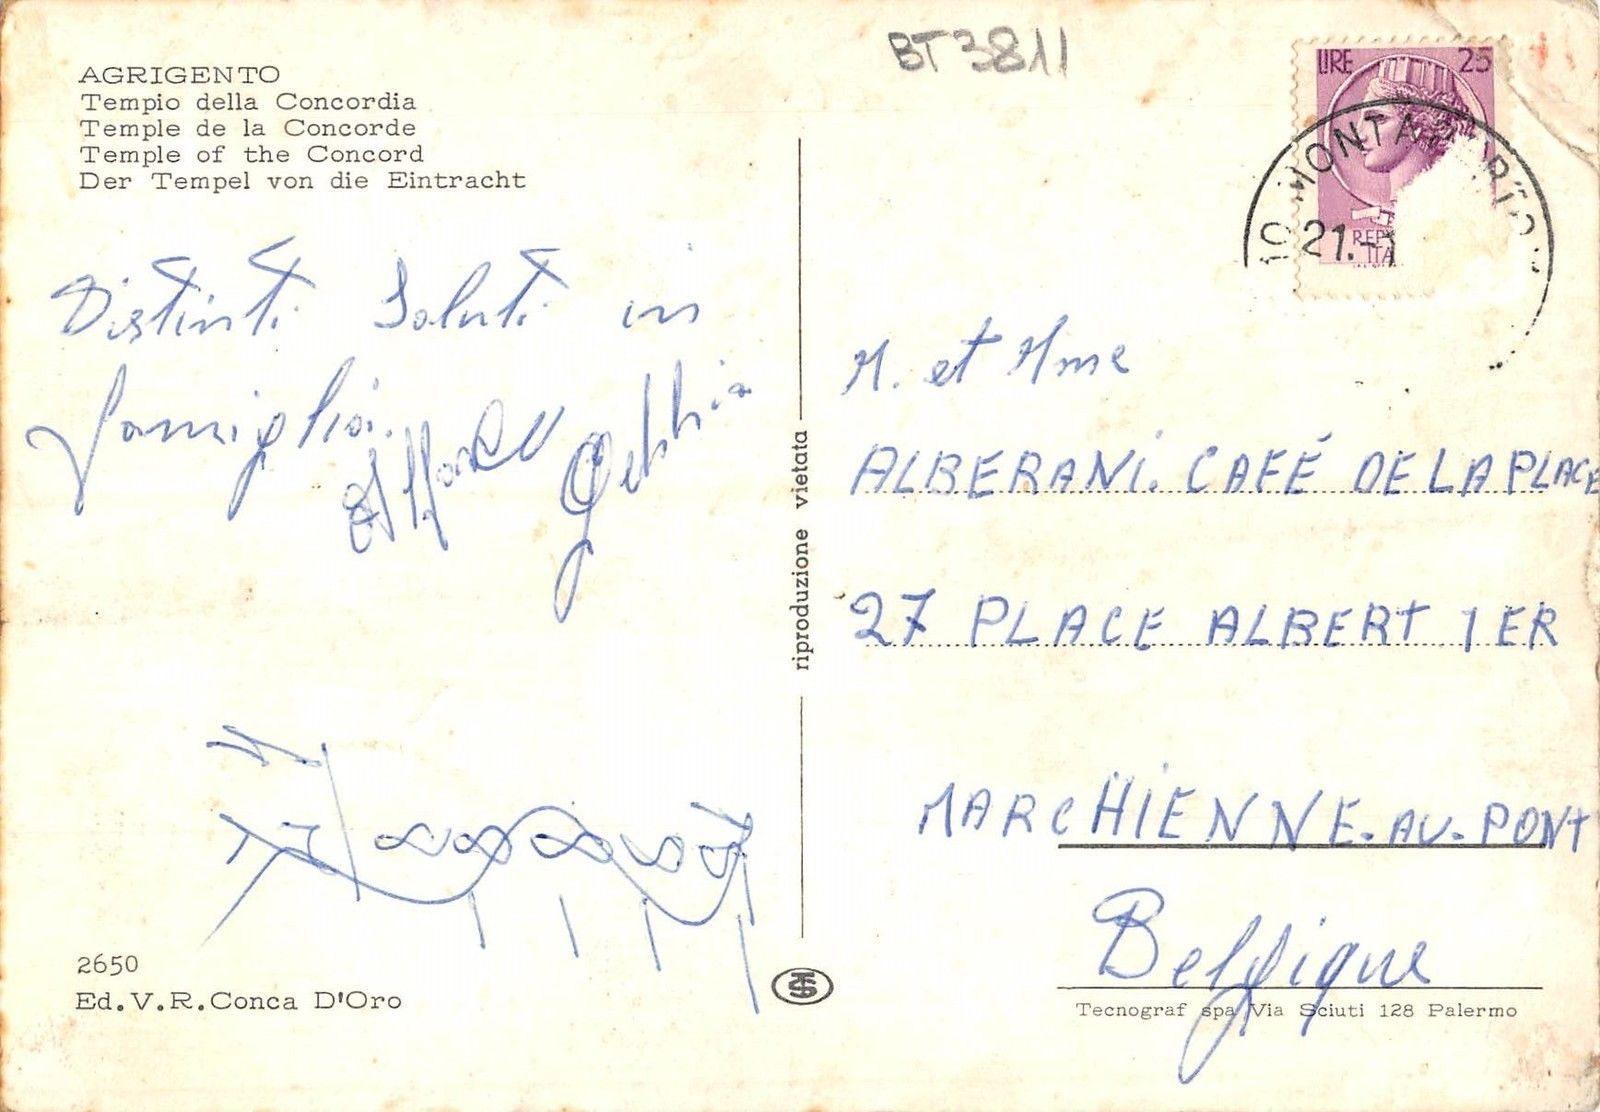 BT3811
AGRIGENTO
Tempio della Concordia
Temple de la Concorde
Temple of the Concord
Der Tempel von die Eintracht
LIRE 25
21.-
Distinti Saluti in
famiglia.
M. et Mme
ALBERANI. CAFÉ DE LA PLACE
27 PLACE ALBERT 1ER
MARCHIENNE-AU-PONT
Belgique
riproduzione vietata
2650
Ed.V.R.Conca D'Oro
Tecnograf spa Via Sciuti 128 Palermo